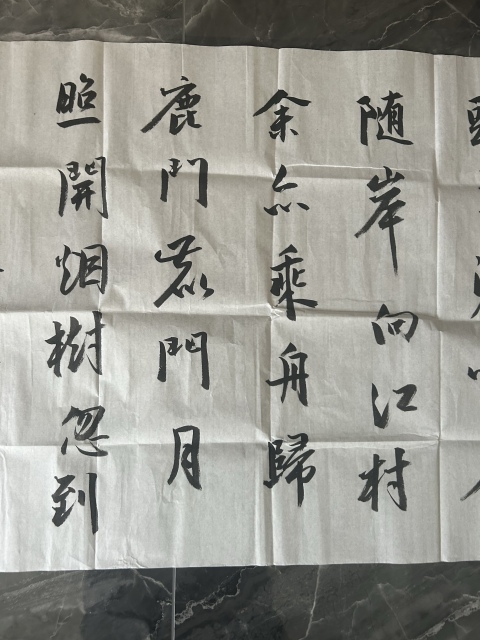 随岸向江村
余亦乘舟歸
鹿門鹿門月
照開烟樹忽到